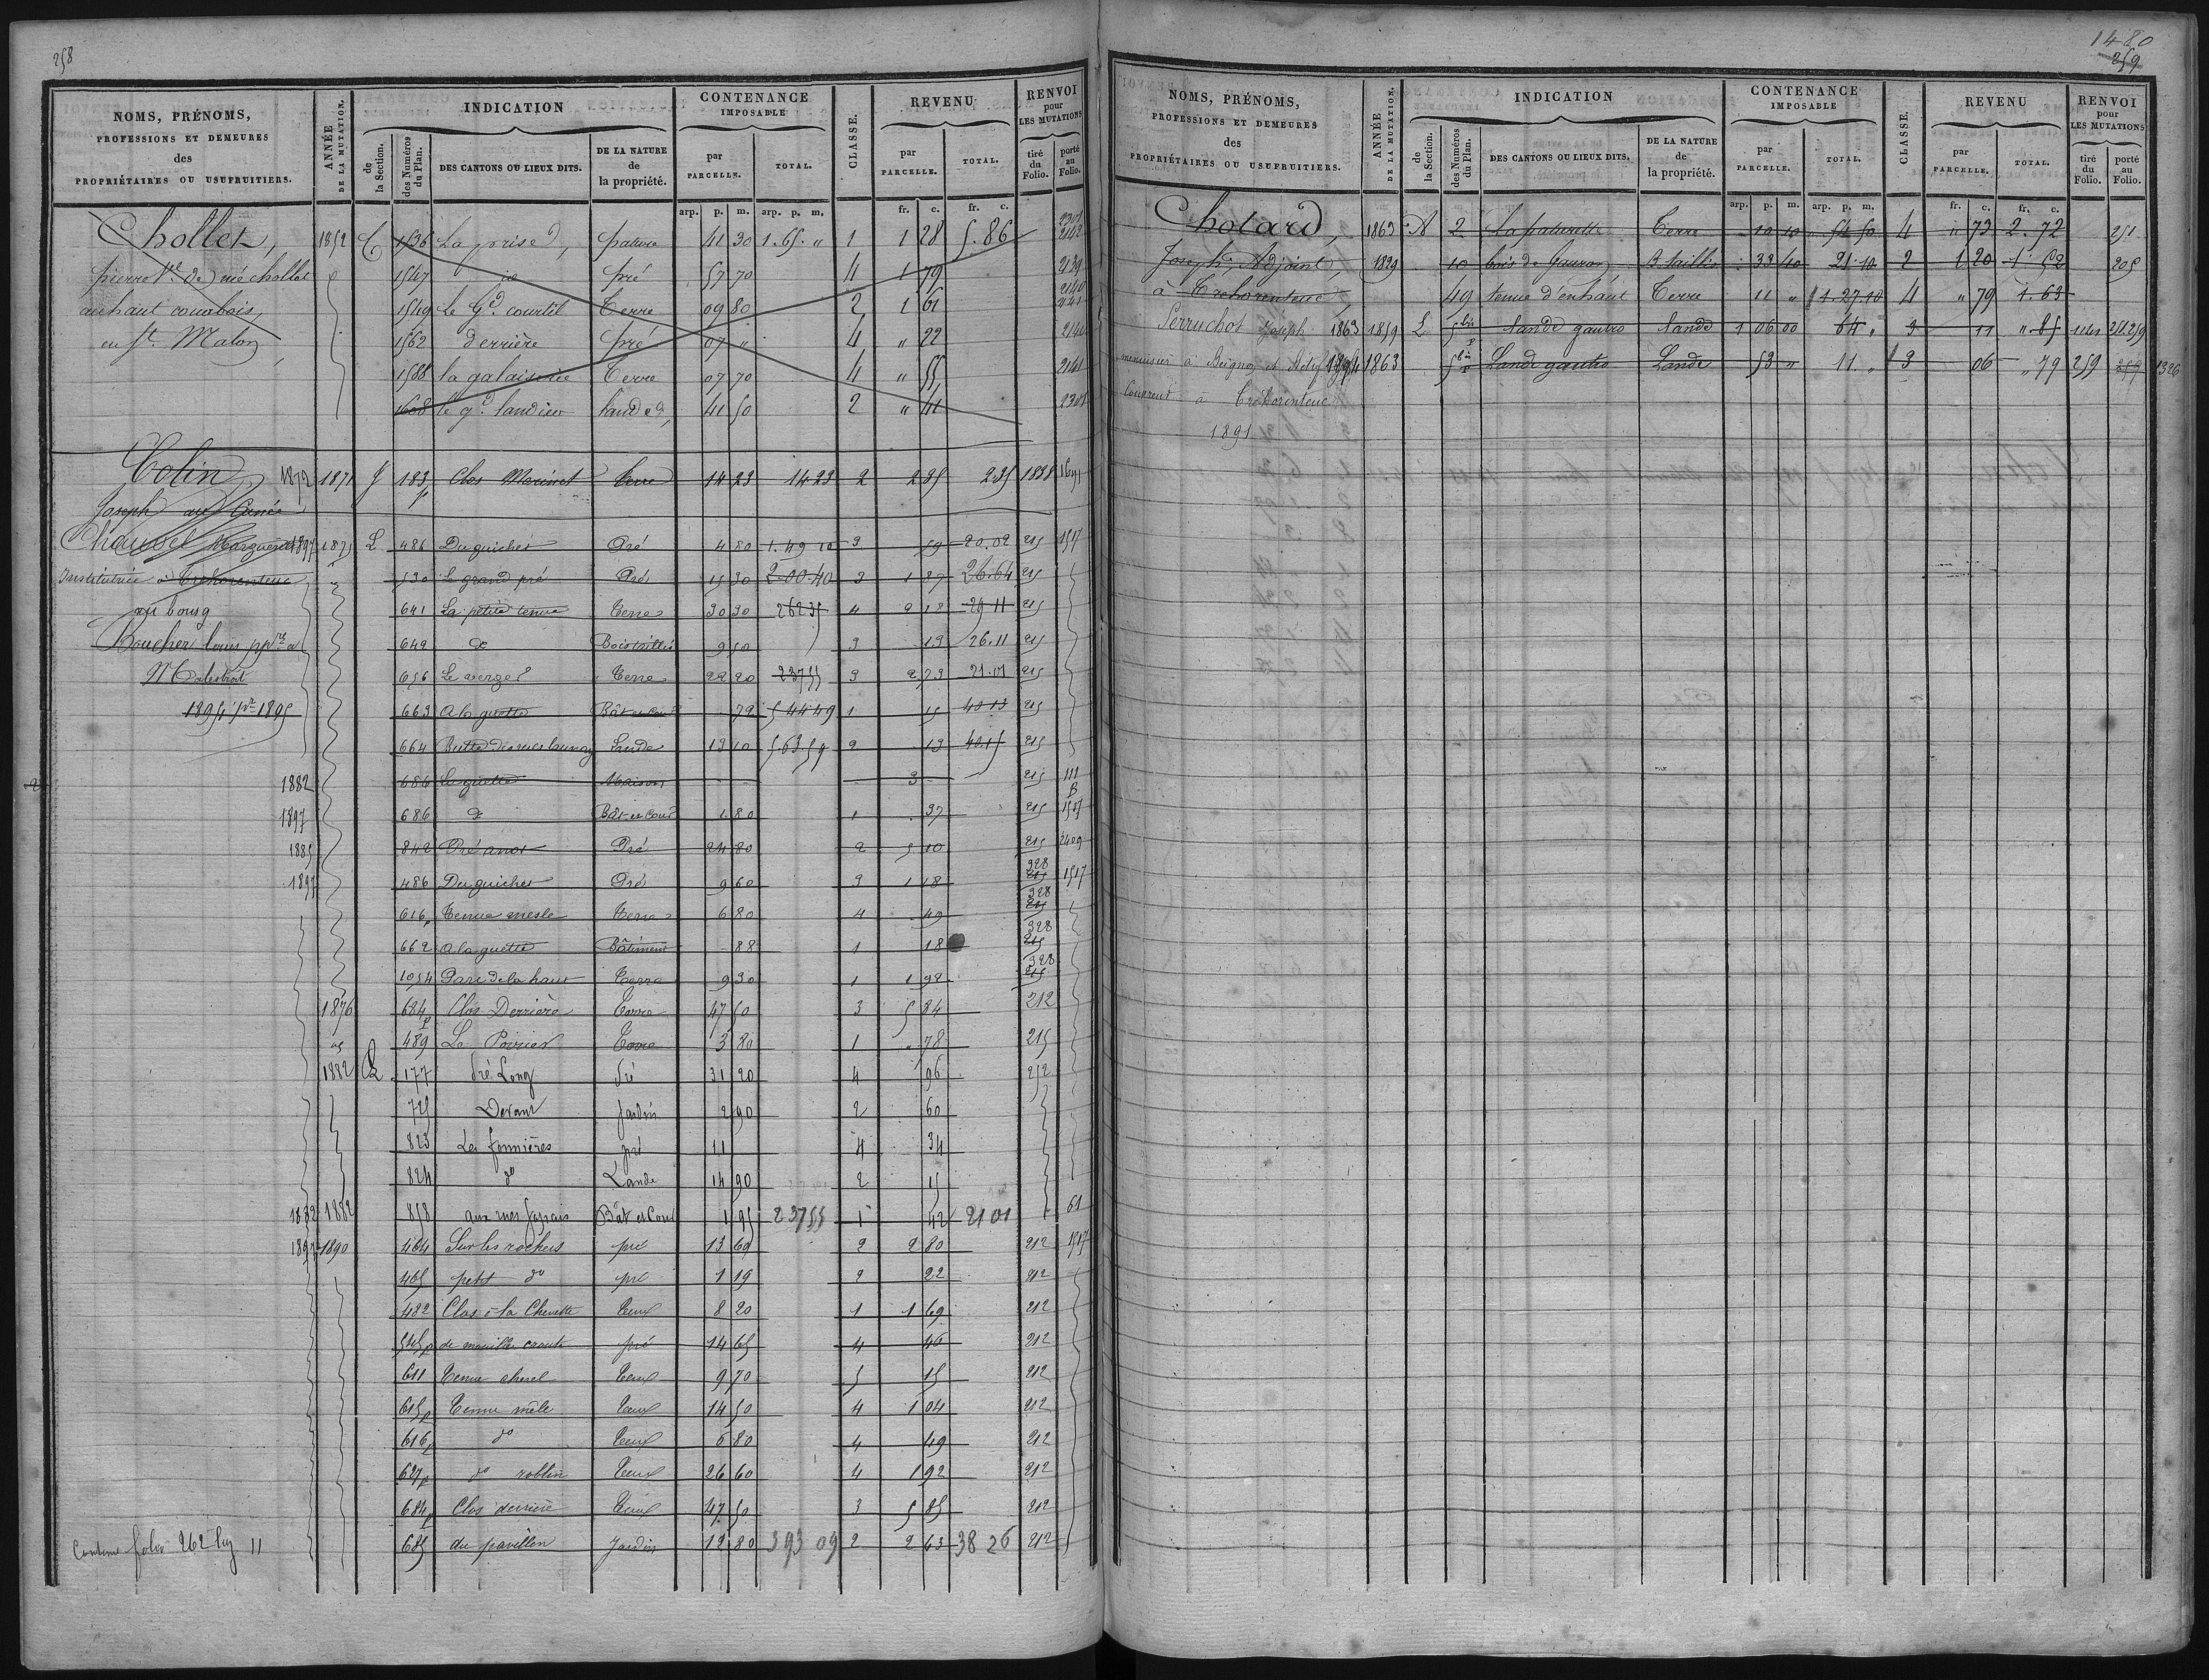 258
NOMS, PRÉNOMS, PROFESSIONS ET DEMEURES des PROPRIÉTAIRES OU USUFRUITIERS.
ANNÉE DE LA MUTATION.
INDICATION
de la Section.
des Numéros du Plan.
DES CANTONS OU LIEUX DITS.
DE LA NATURE de la propriété.
CONTENANCE IMPOSABLE
par PARCELLE.
TOTAL.
CLASSE.
REVENU
par PARCELLE.
TOTAL.
RENVOI pour LES MUTATIONS
tiré du Folio.
porté au Folio.
arp. p. m. arp. p. m. fr. c. fr. c.
Chollet, 1852 C 1536 La prise, pature 41 30 1.65. " 1 1 28 5.86 2301 2142
pierre Ve de née chollet 1547 id pré 57 70 4 1 79 2139
au haut courbois, 1549 le Gd courtil Terre 09 80 2 1 61 2140 2141
en St Malon, 1562 derrière pré 07 " 4 " 22 2140
1588 la galaiserie Terre 07 70 4 " 55 2141
1608 le gd landier lande 41 50 2 " 41 2301
Colin, 1872 1871 J 183 p Clos Morinet Terre 14 23 14 23 2 2 35 2 35 1838 1651
Joseph au Canée
Chaussel Marguerite 1897 1875 L 486 Du guichet Pré 4 80 1.49 10 3 59 20.02 215 1517
Institutrice à Trehorenteuc 530 Le grand pré Pré 15 30 2.00.40 3 1 87 26.64 215
au bourg 641 La petite tenue Terre 30 30 262 35 4 2 18 29 11 215
Boucher louis pprre a 649 do Bois taillis 9 50 3 19 26.11 215
Malestroit 656 Le verger Terre 22 20 237 55 3 2 73 21.01 215
1894 pr 1895 663 A la guette Bât et Cour 72 544 49 1 15 40 13 215
664 Butte des mes launay Lande 13 10 563 59 2 13 40.15 215
1882 686 La guette Maison 3 215 111
1897 686 do Bât et Cour 1 80 1 37 215 1517
1885 842 Pré anot Pré 24 80 2 5 10 215 2409
1897 486 Du guichet Pré 9 60 3 1 18 328 215 1517
616 p Tenue mesle Terre 6 80 4 49 328 215
662 A la guette Bâtiment 88 1 18 328 215
1054 Parc de la haut Terre 9 30 1 1 92 328 215
1876 684 p Clos Derrière Terre 47 50 3 5 84 212
489 Le Poirier Terre 3 80 1 " 78 215
1882 L 177 Pré Long Pré 31 20 4 96 212
725 Devant Jardin 2 90 2 60
823 Les fonnières pré 11 4 34
824 do Lande 14 90 2 15
1882 1882 858 aux mes Jossais Bât et Cour 1 95 237 55 1 42 21 01 61
1897 1890 464 Sur les rochers pré 13 69 2 2 80 212 1517
465 petit do pré 1 19 2 22 212
482 Clos à la Chevette Terre 8 20 1 1 69 212
545 p de mouille croute pré 14 65 4 46 212
611 Tenue cherel Terre 9 70 5 15 212
615 p Tenue mêle Terre 14 50 4 1 04 212
616 p do Terre 6 80 4 49 212
627 p do roblin Terre 26 60 4 1 92 212
684 p Clos derrière Terre 47 50 3 5 85 212
Continué folio 262 lig 11 685 du pavillon Jardin 12 80 393 09 2 2 63 38 26 212
1480
259
NOMS, PRÉNOMS, PROFESSIONS ET DEMEURES des PROPRIÉTAIRES OU USUFRUITIERS.
ANNÉE DE LA MUTATION.
INDICATION
de la Section.
des Numéros du Plan.
DES CANTONS OU LIEUX DITS.
DE LA NATURE de la propriété.
CONTENANCE IMPOSABLE
par PARCELLE.
TOTAL.
CLASSE.
REVENU
par PARCELLE.
TOTAL.
RENVOI pour LES MUTATIONS
tiré du Folio.
porté au Folio.
arp. p. m. arp. p. m. fr. c. fr. c.
Chotard, 1863 A 2 La paturette Terre 10 10 54 50 4 " 73 2.72 251
Joseph, Adjoint, 1829 10 bois de Gauron B. taillis 33 10 21 10 2 1 20 1 52 205
à Trehorenteuc, 49 tenue d'enhaut Terre 11 " 1 27 10 4 " 79 1.63
Perruchot Joseph 1863 1859 L 5 bis p Lande gautro Lande 1 06 00 64 " 3 11 " 85 1141 251.259
menuisier à Beignon et 1894 1863 5 bis p Lande gautro Lande 53 " 11 " 3 06 " 79 259 259 1326
Couvreur à Trehorenteuc
1891